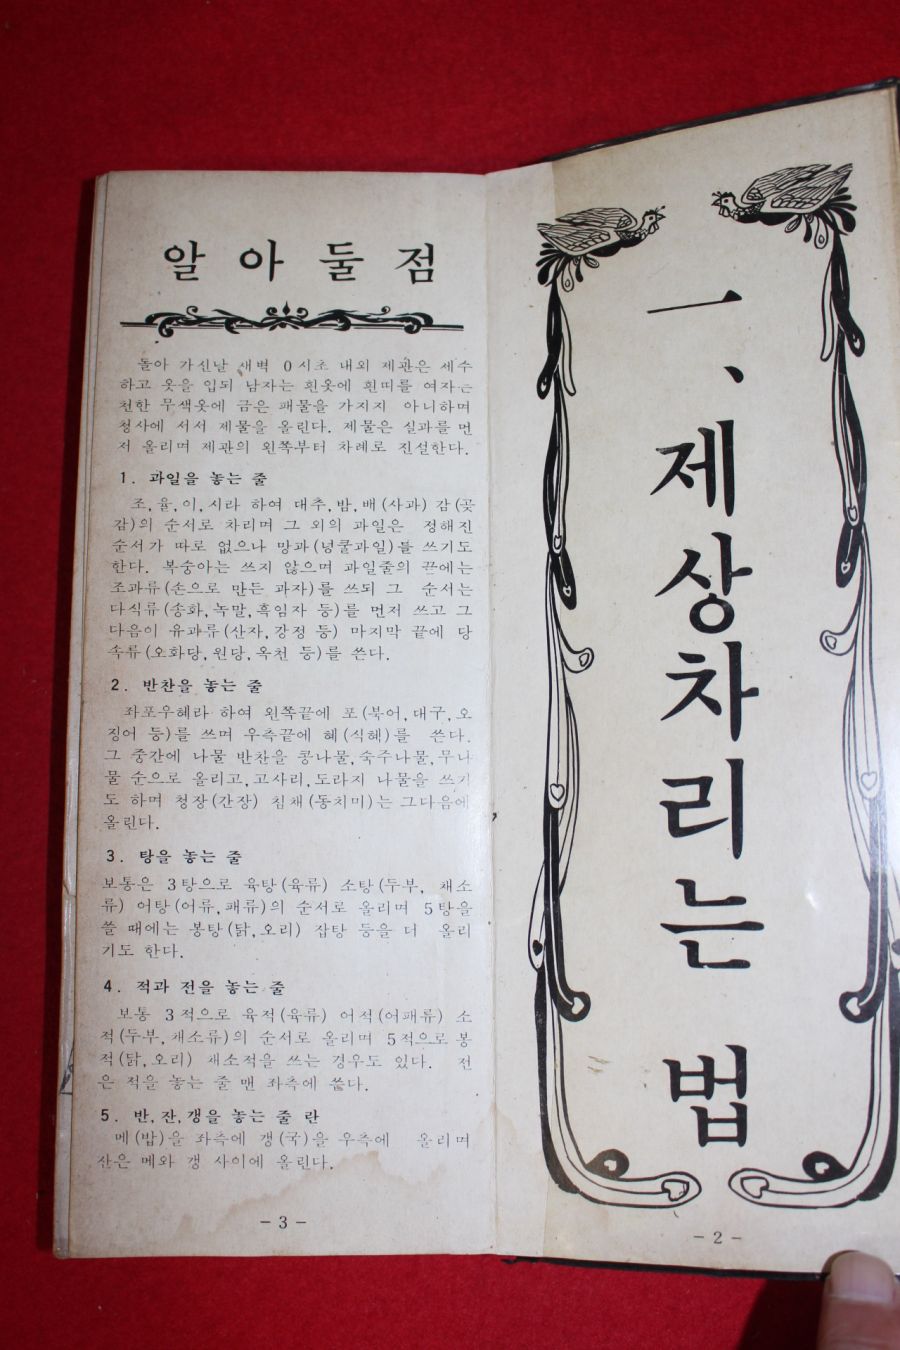 一、제상차리는 법
- 2 -
알 아 둘 점
돌아 가신날 새벽 0시초 내외 제관은 세수
하고 옷을 입되 남자는 흰옷에 흰띠를 여자는
천한 무색옷에 금은 패물을 가지지 아니하며
청사에 서서 제물을 올린다. 제물은 실과를 먼
저 올리며 제관의 왼쪽부터 차례로 진설한다.
1. 과일을 놓는 줄
조,율,이,시라 하여 대추,밤,배(사과) 감(곶
감)의 순서로 차리며 그 외의 과일은 정해진
순서가 따로 없으나 망과(넝쿨과일)를 쓰기도
한다. 복숭아는 쓰지 않으며 과일줄의 끝에는
조과류(손으로 만든 과자)를 쓰되 그 순서는
다식류(송화,녹말,흑임자 등)를 먼저 쓰고 그
다음이 유과류(산자,강정 등) 마지막 끝에 당
속류(오화당,원당,옥천 등)를 쓴다.
2. 반찬을 놓는 줄
좌포우혜라 하여 왼쪽끝에 포(북어,대구,오
징어 등)를 쓰며 우측끝에 혜(식혜)를 쓴다.
그 중간에 나물 반찬을 콩나물,숙주나물,무나
물 순으로 올리고,고사리,도라지 나물을 쓰기
도 하며 청장(간장) 침채(동치미)는 그다음에
올린다.
3. 탕을 놓는 줄
보통은 3탕으로 육탕(육류) 소탕(두부, 채소
류) 어탕(어류,패류)의 순서로 올리며 5탕을
쓸 때에는 봉탕(닭,오리) 잡탕 등을 더 올리
기도 한다.
4. 적과 전을 놓는 줄
보통 3적으로 육적(육류) 어적(어패류) 소
적(두부,채소류)의 순서로 올리며 5적으로 봉
적(닭,오리) 채소적을 쓰는 경우도 있다. 전
은 적을 놓는 줄 맨 좌측에 쓴다.
5. 반,잔,갱을 놓는 줄 란
메(밥)을 좌측에 갱(국)을 우측에 올리며
산은 메와 갱 사이에 올린다.
- 3 -